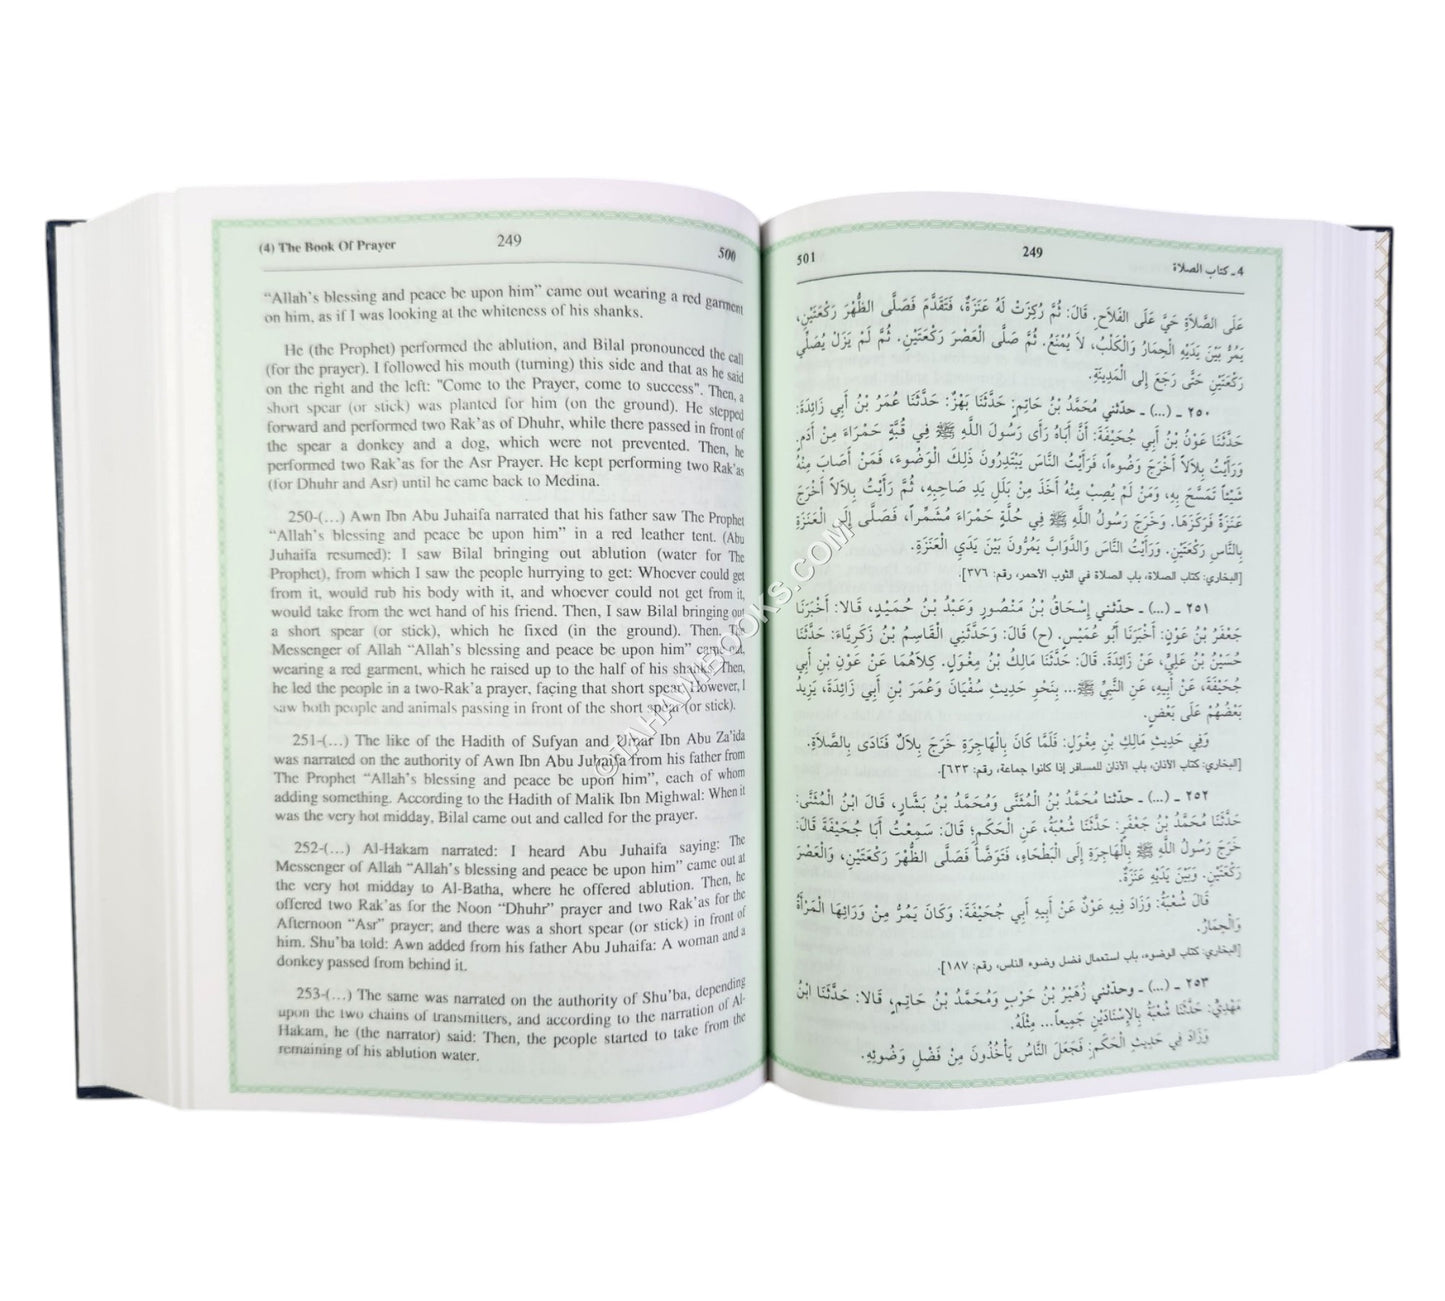 (4) The Book Of Prayer 249 500
“Allah’s blessing and peace be upon him” came out wearing a red garment
on him, as if I was looking at the whiteness of his shanks.
He (the Prophet) performed the ablution, and Bilal pronounced the call
(for the prayer). I followed his mouth (turning) this side and that as he said
on the right and the left: "Come to the Prayer, come to success". Then, a
short spear (or stick) was planted for him (on the ground). He stepped
forward and performed two Rak’as of Dhuhr, while there passed in front of
the spear a donkey and a dog, which were not prevented. Then, he
performed two Rak’as for the Asr Prayer. He kept performing two Rak’as
(for Dhuhr and Asr) until he came back to Medina.
250-(…) Awn Ibn Abu Juhaifa narrated that his father saw The Prophet
“Allah’s blessing and peace be upon him” in a red leather tent. (Abu
Juhaifa resumed): I saw Bilal bringing out ablution (water for The
Prophet), from which I saw the people hurrying to get: Whoever could get
from it, would rub his body with it, and whoever could not get from it,
would take from the wet hand of his friend. Then, I saw Bilal bringing out
a short spear (or stick), which he fixed (in the ground). Then, The
Messenger of Allah “Allah’s blessing and peace be upon him” came out,
wearing a red garment, which he raised up to the half of his shanks. Then,
he led the people in a two-Rak’a prayer, facing that short spear. However, I
saw both people and animals passing in front of the short spear (or stick).
251-(…) The like of the Hadith of Sufyan and Umar Ibn Abu Za’ida
was narrated on the authority of Awn Ibn Abu Juhaifa from his father from
The Prophet “Allah’s blessing and peace be upon him”, each of whom
adding something. According to the Hadith of Malik Ibn Mighwal: When it
was the very hot midday, Bilal came out and called for the prayer.
252-(…) Al-Hakam narrated: I heard Abu Juhaifa saying: The
Messenger of Allah “Allah’s blessing and peace be upon him” came out at
the very hot midday to Al-Batha, where he offered ablution. Then, he
offered two Rak’as for the Noon “Dhuhr” prayer and two Rak’as for the
Afternoon “Asr” prayer; and there was a short spear (or stick) in front of
him. Shu’ba told: Awn added from his father Abu Juhaifa: A woman and a
donkey passed from behind it.
253-(…) The same was narrated on the authority of Shu’ba, depending
upon the two chains of transmitters, and according to the narration of Al-
Hakam, he (the narrator) said: Then, the people started to take from the
remaining of his ablution water.
©TAHAWIBOOKS.COM
4 ـ كتاب الصلاة 249 501
عَلَى الصَّلاَةِ حَيَّ عَلَى الفَلاَحِ. قَالَ: ثُمَّ رُكِزَتْ لَهُ عَنَزَةٌ، فَتَقَدَّمَ فَصَلَّى الظُّهْرَ رَكْعَتَيْنِ،
يَمُرُّ بَيْنَ يَدَيْهِ الْحِمَارُ وَالْكَلْبُ، لاَ يُمْنَعُ. ثُمَّ صَلَّى الْعَصْرَ رَكْعَتَيْنِ. ثُمَّ لَمْ يَزَلْ يُصَلِّي
رَكْعَتَيْنِ حَتَّى رَجَعَ إِلَى الْمَدِينَةِ.
٢٥٠ ـ (...) ـ حدّثني مُحَمَّدُ بْنُ حَاتِمٍ: حَدَّثَنَا بَهْزٌ: حَدَّثَنَا عُمَرُ بْنُ أَبِي زَائِدَةَ:
حَدَّثَنَا عَوْنُ بْنُ أَبِي جُحَيْفَةَ: أَنَّ أَبَاهُ رَأَى رَسُولَ اللَّهِ ﷺ فِي قُبَّةٍ حَمْرَاءَ مِنْ أَدَمٍ.
وَرَأَيْتُ بِلاَلاً أَخْرَجَ وَضُوءاً، فَرَأَيْتُ النَّاسَ يَبْتَدِرُونَ ذَلِكَ الْوَضُوءَ، فَمَنْ أَصَابَ مِنْهُ
شَيْئاً تَمَسَّحَ بِهِ، وَمَنْ لَمْ يُصِبْ مِنْهُ أَخَذَ مِنْ بَلَلِ يَدِ صَاحِبِهِ، ثُمَّ رَأَيْتُ بِلاَلاً أَخْرَجَ
عَنَزَةً فَرَكَزَهَا. وَخَرَجَ رَسُولُ اللَّهِ ﷺ فِي حُلَّةٍ حَمْرَاءَ مُشَمِّراً، فَصَلَّى إِلَى الْعَنَزَةِ
بِالنَّاسِ رَكْعَتَيْنِ. وَرَأَيْتُ النَّاسَ وَالدَّوَابَّ يَمُرُّونَ بَيْنَ يَدَيِ الْعَنَزَةِ.
[البخاري: كتاب الصلاة، باب الصلاة في الثوب الأحمر، رقم: ٣٧٦].
٢٥١ ـ (...) ـ حدّثني إِسْحَاقُ بْنُ مَنْصُورٍ وَعَبْدُ بْنُ حُمَيْدٍ، قَالا: أَخْبَرَنَا
جَعْفَرُ بْنُ عَوْنٍ: أَخْبَرَنَا أَبُو عُمَيْسٍ. (ح) قَالَ: وَحَدَّثَنِي الْقَاسِمُ بْنُ زَكَرِيَّاءَ: حَدَّثَنَا
حُسَيْنُ بْنُ عَلِيٍّ، عَنْ زَائِدَةَ. قَالَ: حَدَّثَنَا مَالِكُ بْنُ مِغْوَلٍ. كِلاَهُمَا عَنْ عَوْنِ بْنِ أَبِي
جُحَيْفَةَ، عَنْ أَبِيهِ، عَنِ النَّبِيِّ ﷺ... بِنَحْوِ حَدِيثِ سُفْيَانَ وَعُمَرَ بْنِ أَبِي زَائِدَةَ، يَزِيدُ
بَعْضُهُمْ عَلَى بَعْضٍ.
وَفِي حَدِيثِ مَالِكِ بْنِ مِغْوَلٍ: فَلَمَّا كَانَ بِالْهَاجِرَةِ خَرَجَ بِلاَلٌ فَنَادَى بِالصَّلاَةِ.
[البخاري: كتاب الأذان، باب الأذان للمسافر إذا كانوا جماعة، رقم: ٦٣٣].
٢٥٢ ـ (...) ـ حدّثنا مُحَمَّدُ بْنُ الْمُثَنَّى وَمُحَمَّدُ بْنُ بَشَّارٍ، قَالَ ابْنُ الْمُثَنَّى:
حَدَّثَنَا مُحَمَّدُ بْنُ جَعْفَرٍ: حَدَّثَنَا شُعْبَةُ، عَنِ الْحَكَمِ؛ قَالَ: سَمِعْتُ أَبَا جُحَيْفَةَ قَالَ:
خَرَجَ رَسُولُ اللَّهِ ﷺ بِالْهَاجِرَةِ إِلَى الْبَطْحَاءِ، فَتَوَضَّأَ فَصَلَّى الظُّهْرَ رَكْعَتَيْنِ، وَالْعَصْرَ
رَكْعَتَيْنِ. وَبَيْنَ يَدَيْهِ عَنَزَةٌ.
قَالَ شُعْبَةُ: وَزَادَ فِيهِ عَوْنٌ عَنْ أَبِيهِ أَبِي جُحَيْفَةَ: وَكَانَ يَمُرُّ مِنْ وَرَائِهَا الْمَرْأَةُ
وَالْحِمَارُ.
[البخاري: كتاب الوضوء، باب استعمال فضل وضوء الناس، رقم: ١٨٧].
٢٥٣ ـ (...) ـ وحدّثني زُهَيْرُ بْنُ حَرْبٍ وَمُحَمَّدُ بْنُ حَاتِمٍ، قَالا: حَدَّثَنَا ابْنُ
مَهْدِيٍّ: حَدَّثَنَا شُعْبَةُ بِالإِسْنَادَيْنِ جَمِيعاً... مِثْلَهُ.
وَزَادَ فِي حَدِيثِ الْحَكَمِ: فَجَعَلَ النَّاسُ يَأْخُذُونَ مِنْ فَضْلِ وَضُوئِهِ.